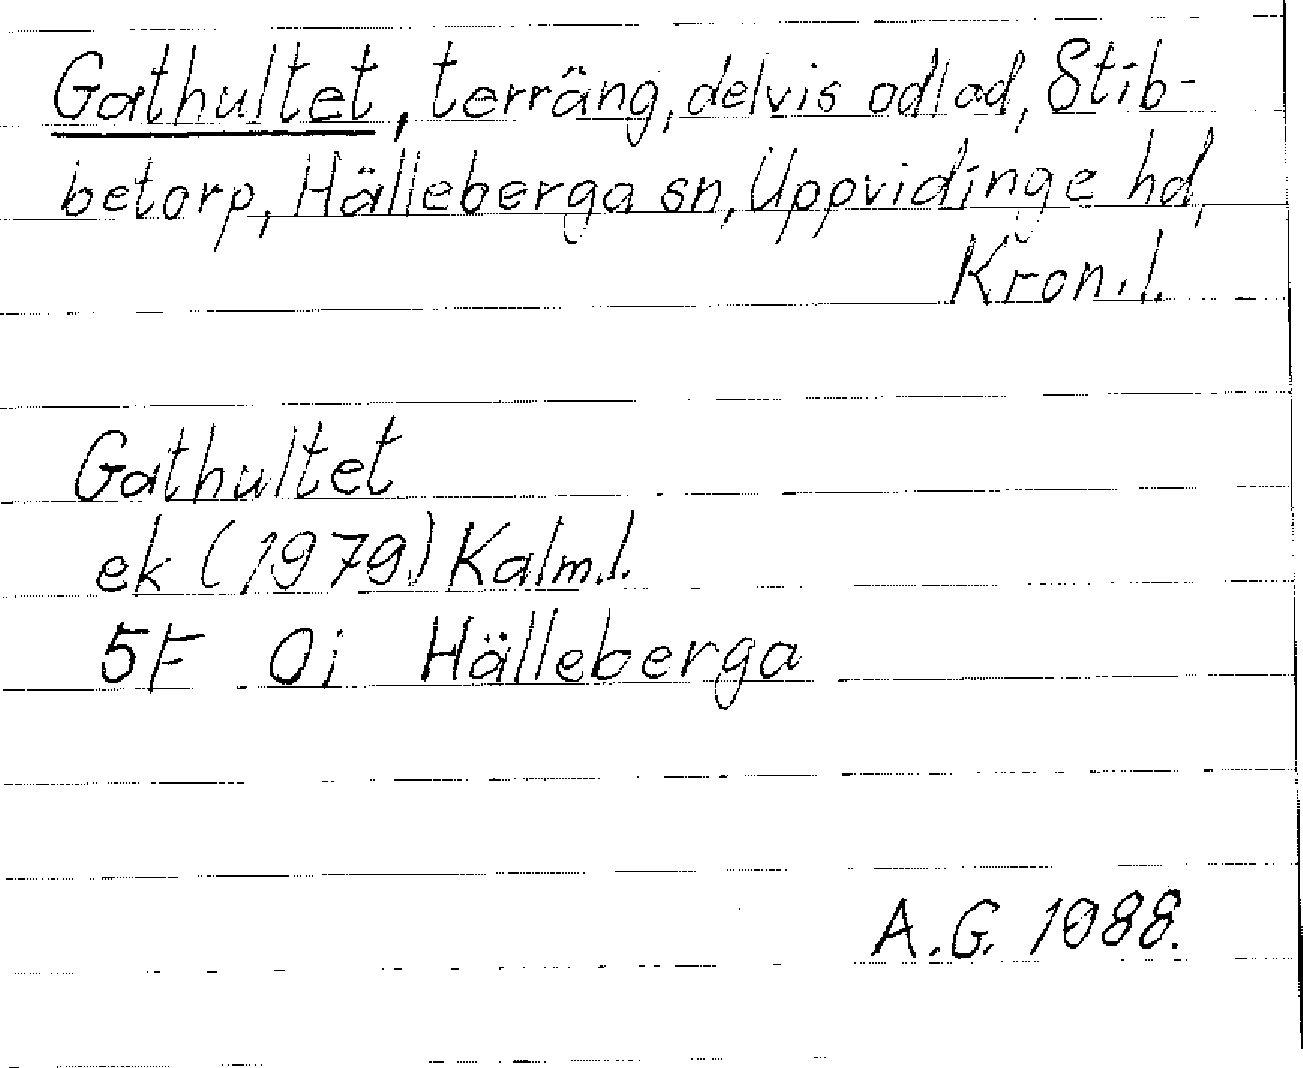 Gathultet, terräng, delvis odlad, Stib-
betorp, Hälleberga sn, Uppvidinge hd,
Kron.l.
Gathultet
ek (1979) Kalm.l.
5F 0j Hälleberga
A.G. 1988.